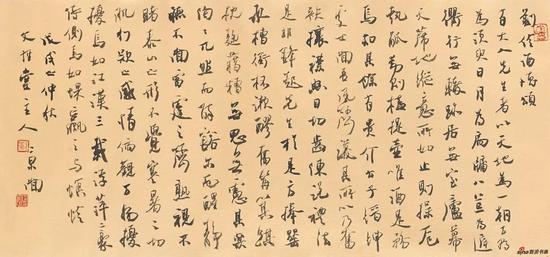 劉伶酒德頌
有大人先生者以天地為一朝万期
為須臾日月為扃牖八荒為庭
衢行無轍跡居無室廬幕
天席地縱意所如止則操卮
執觚動則挈榼提壺唯酒是務
焉知其餘有貴介公子搢紳
處士聞吾風聲議其所以乃奮
袂攘襟怒目切齒陳說禮法
是非鋒起先生於是方捧罌
承槽銜杯漱醪奮髯箕踞
枕麴藉糟無思無慮其樂
陶陶兀然而醉豁尔而醒靜
聽不聞雷霆之聲熟視不
睹泰山之形不覺寒暑之切
肌利欲之感情俯觀万物擾
擾焉如江漢之載浮萍二豪
侍側焉如蜾蠃之与螟蛉
戊戌之仲秋
堂主人
sina 新浪收藏